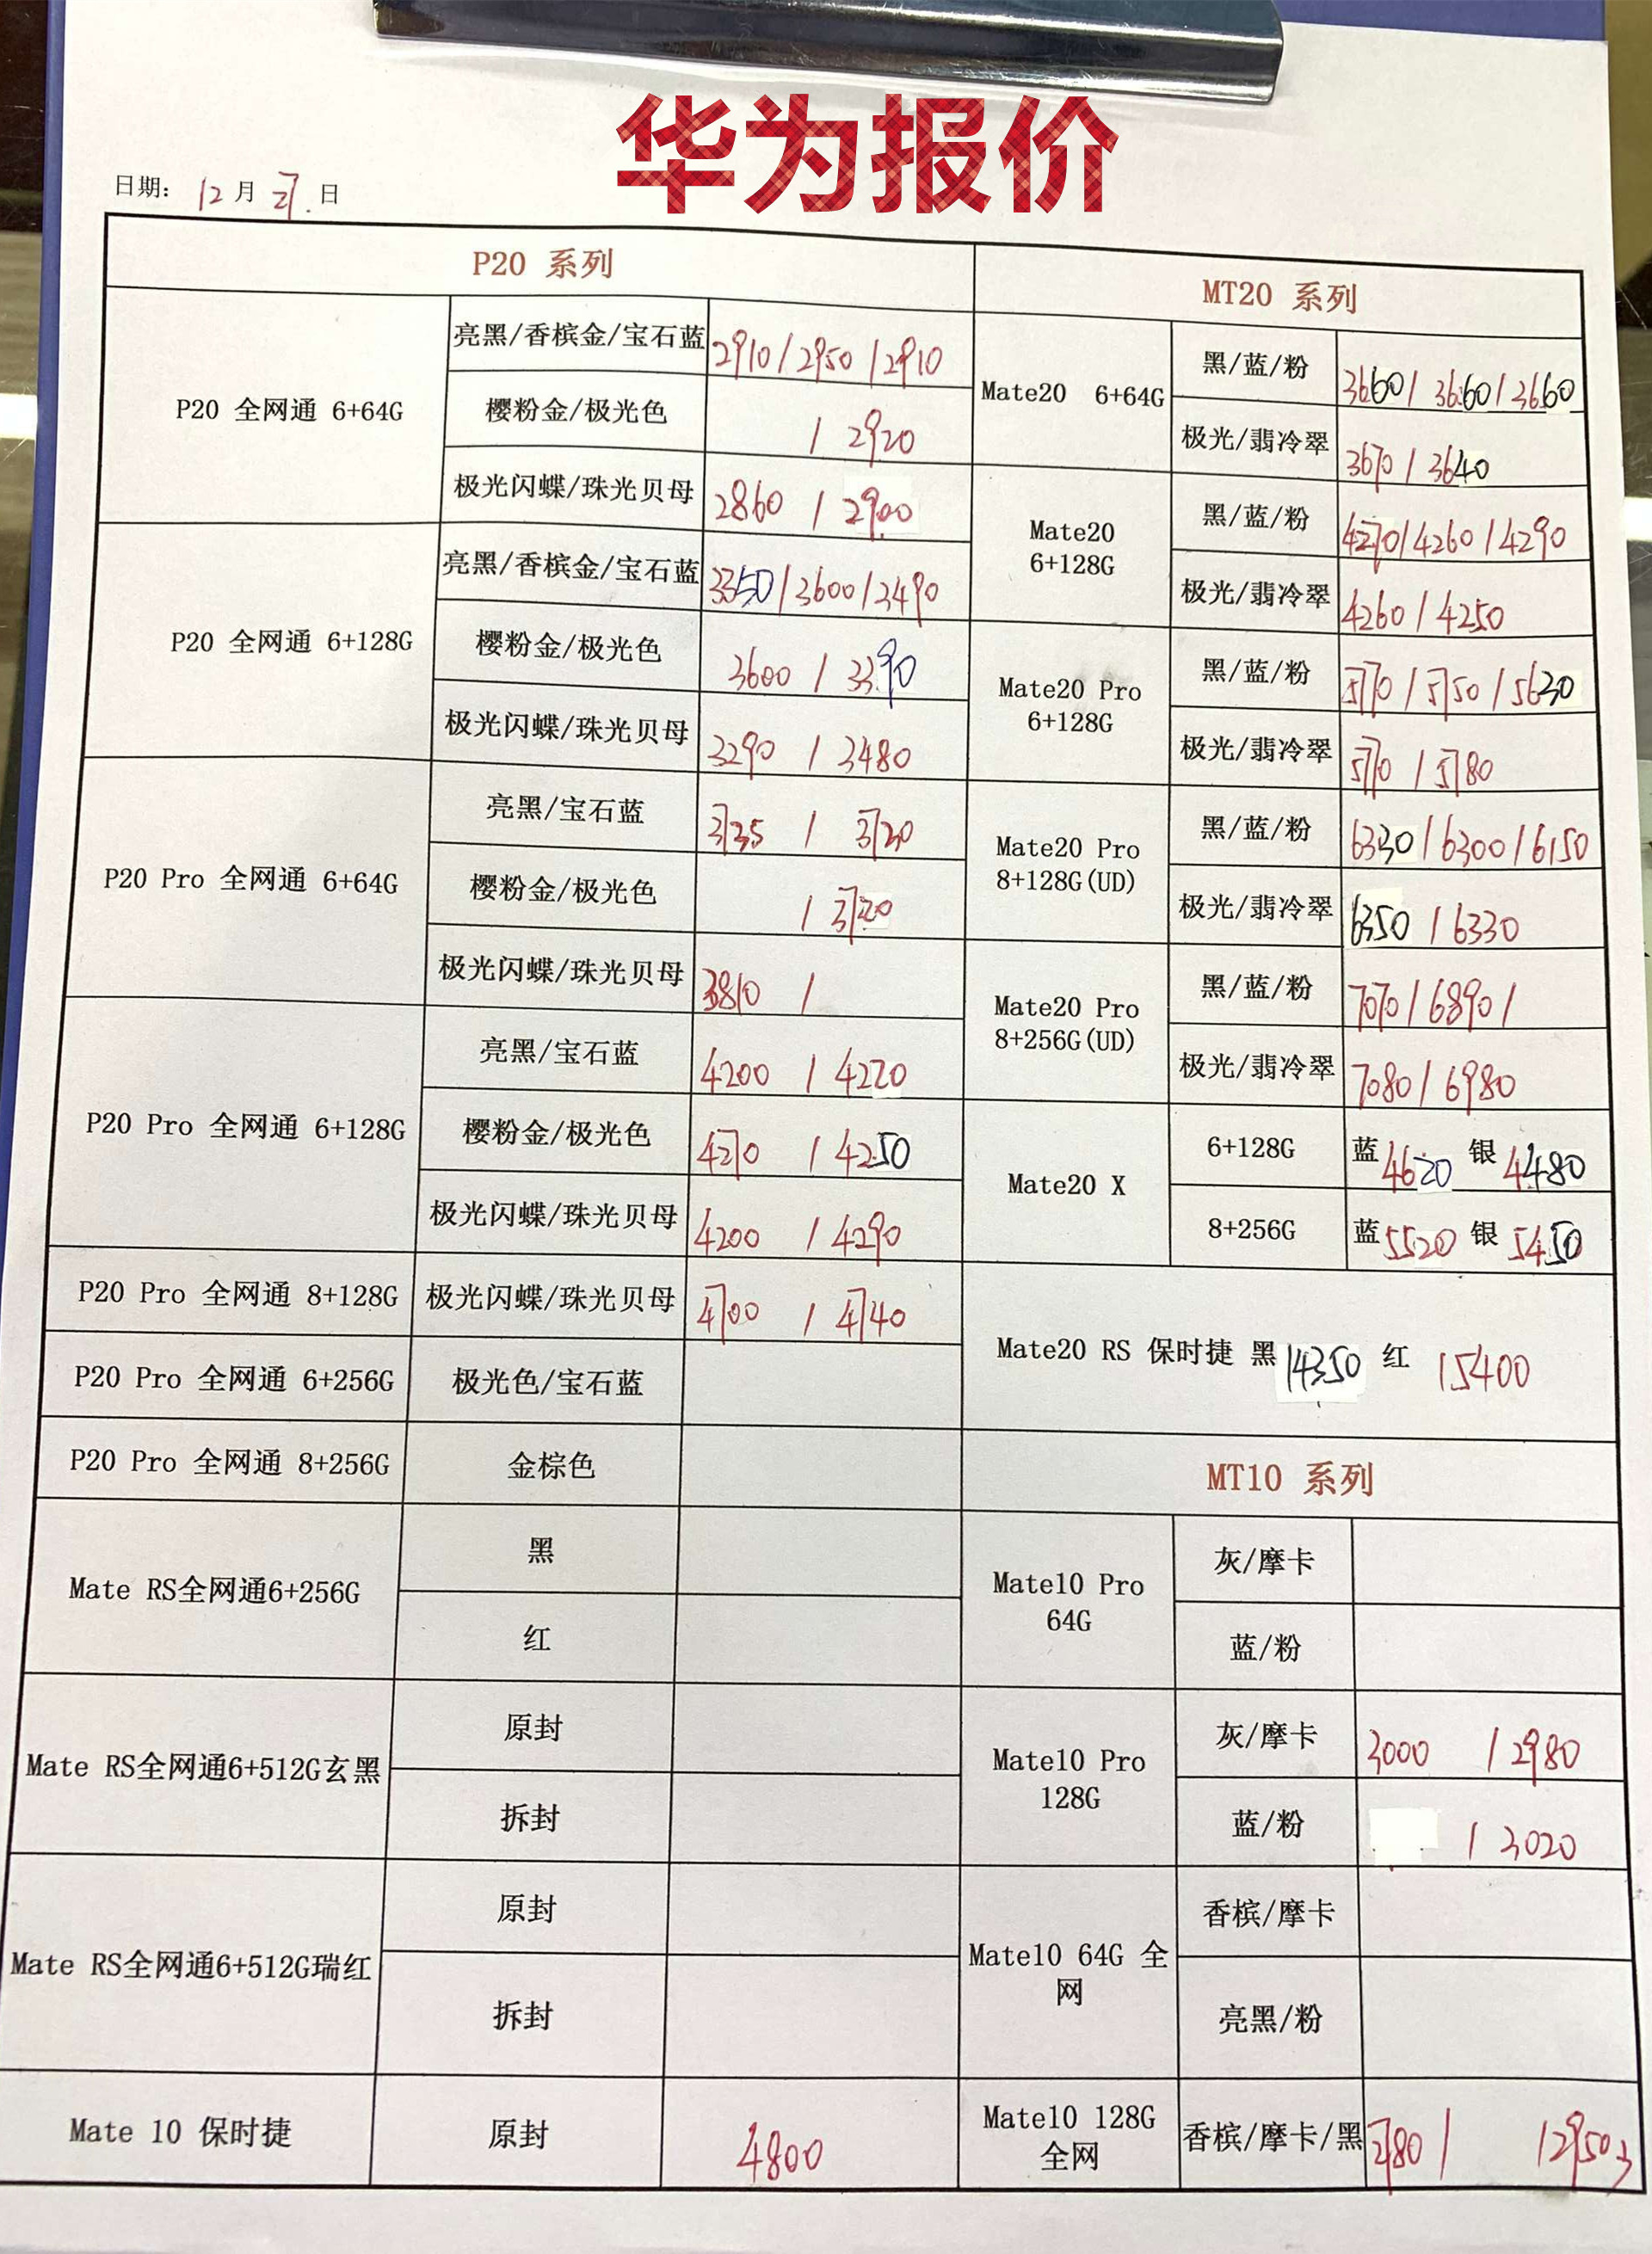 华为报价
日期： 12 月 27. 日
P20 系列
P20 全网通 6+64G
亮黑/香槟金/宝石蓝 2910 / 2950 / 2910
樱粉金/极光色 / 2920
极光闪蝶/珠光贝母 2860 / 2900
P20 全网通 6+128G
亮黑/香槟金/宝石蓝 3350 / 3600 / 3490
樱粉金/极光色 3600 / 3390
极光闪蝶/珠光贝母 3290 / 3480
P20 Pro 全网通 6+64G
亮黑/宝石蓝 3735 / 3720
樱粉金/极光色 / 3720
极光闪蝶/珠光贝母 3810 /
P20 Pro 全网通 6+128G
亮黑/宝石蓝 4200 / 4220
樱粉金/极光色 4270 / 4250
极光闪蝶/珠光贝母 4200 / 4290
P20 Pro 全网通 8+128G 极光闪蝶/珠光贝母 4700 / 4740
P20 Pro 全网通 6+256G 极光色/宝石蓝
P20 Pro 全网通 8+256G 金棕色
Mate RS全网通6+256G
黑
红
Mate RS全网通6+512G玄黑
原封
拆封
Mate RS全网通6+512G瑞红
原封
拆封
Mate 10 保时捷 原封 4800
MT20 系列
Mate20 6+64G
黑/蓝/粉 3660 / 3660 / 3660
极光/翡冷翠 3670 / 3640
Mate20
6+128G
黑/蓝/粉 4270 / 4260 / 4290
极光/翡冷翠 4260 / 4250
Mate20 Pro
6+128G
黑/蓝/粉 5770 / 5750 / 5630
极光/翡冷翠 5770 / 5780
Mate20 Pro
8+128G(UD)
黑/蓝/粉 6330 / 6300 / 6150
极光/翡冷翠 6350 / 6330
Mate20 Pro
8+256G(UD)
黑/蓝/粉 7070 / 6890 /
极光/翡冷翠 7080 / 6980
Mate20 X
6+128G 蓝 4620 银 4480
8+256G 蓝 5520 银 5450
Mate20 RS 保时捷 黑 14350 红 15400
MT10 系列
Mate10 Pro
64G
灰/摩卡
蓝/粉
Mate10 Pro
128G
灰/摩卡 3000 / 2980
蓝/粉 / 3020
Mate10 64G 全
网
香槟/摩卡
亮黑/粉
Mate10 128G
全网
香槟/摩卡/黑 2780 / / 2950